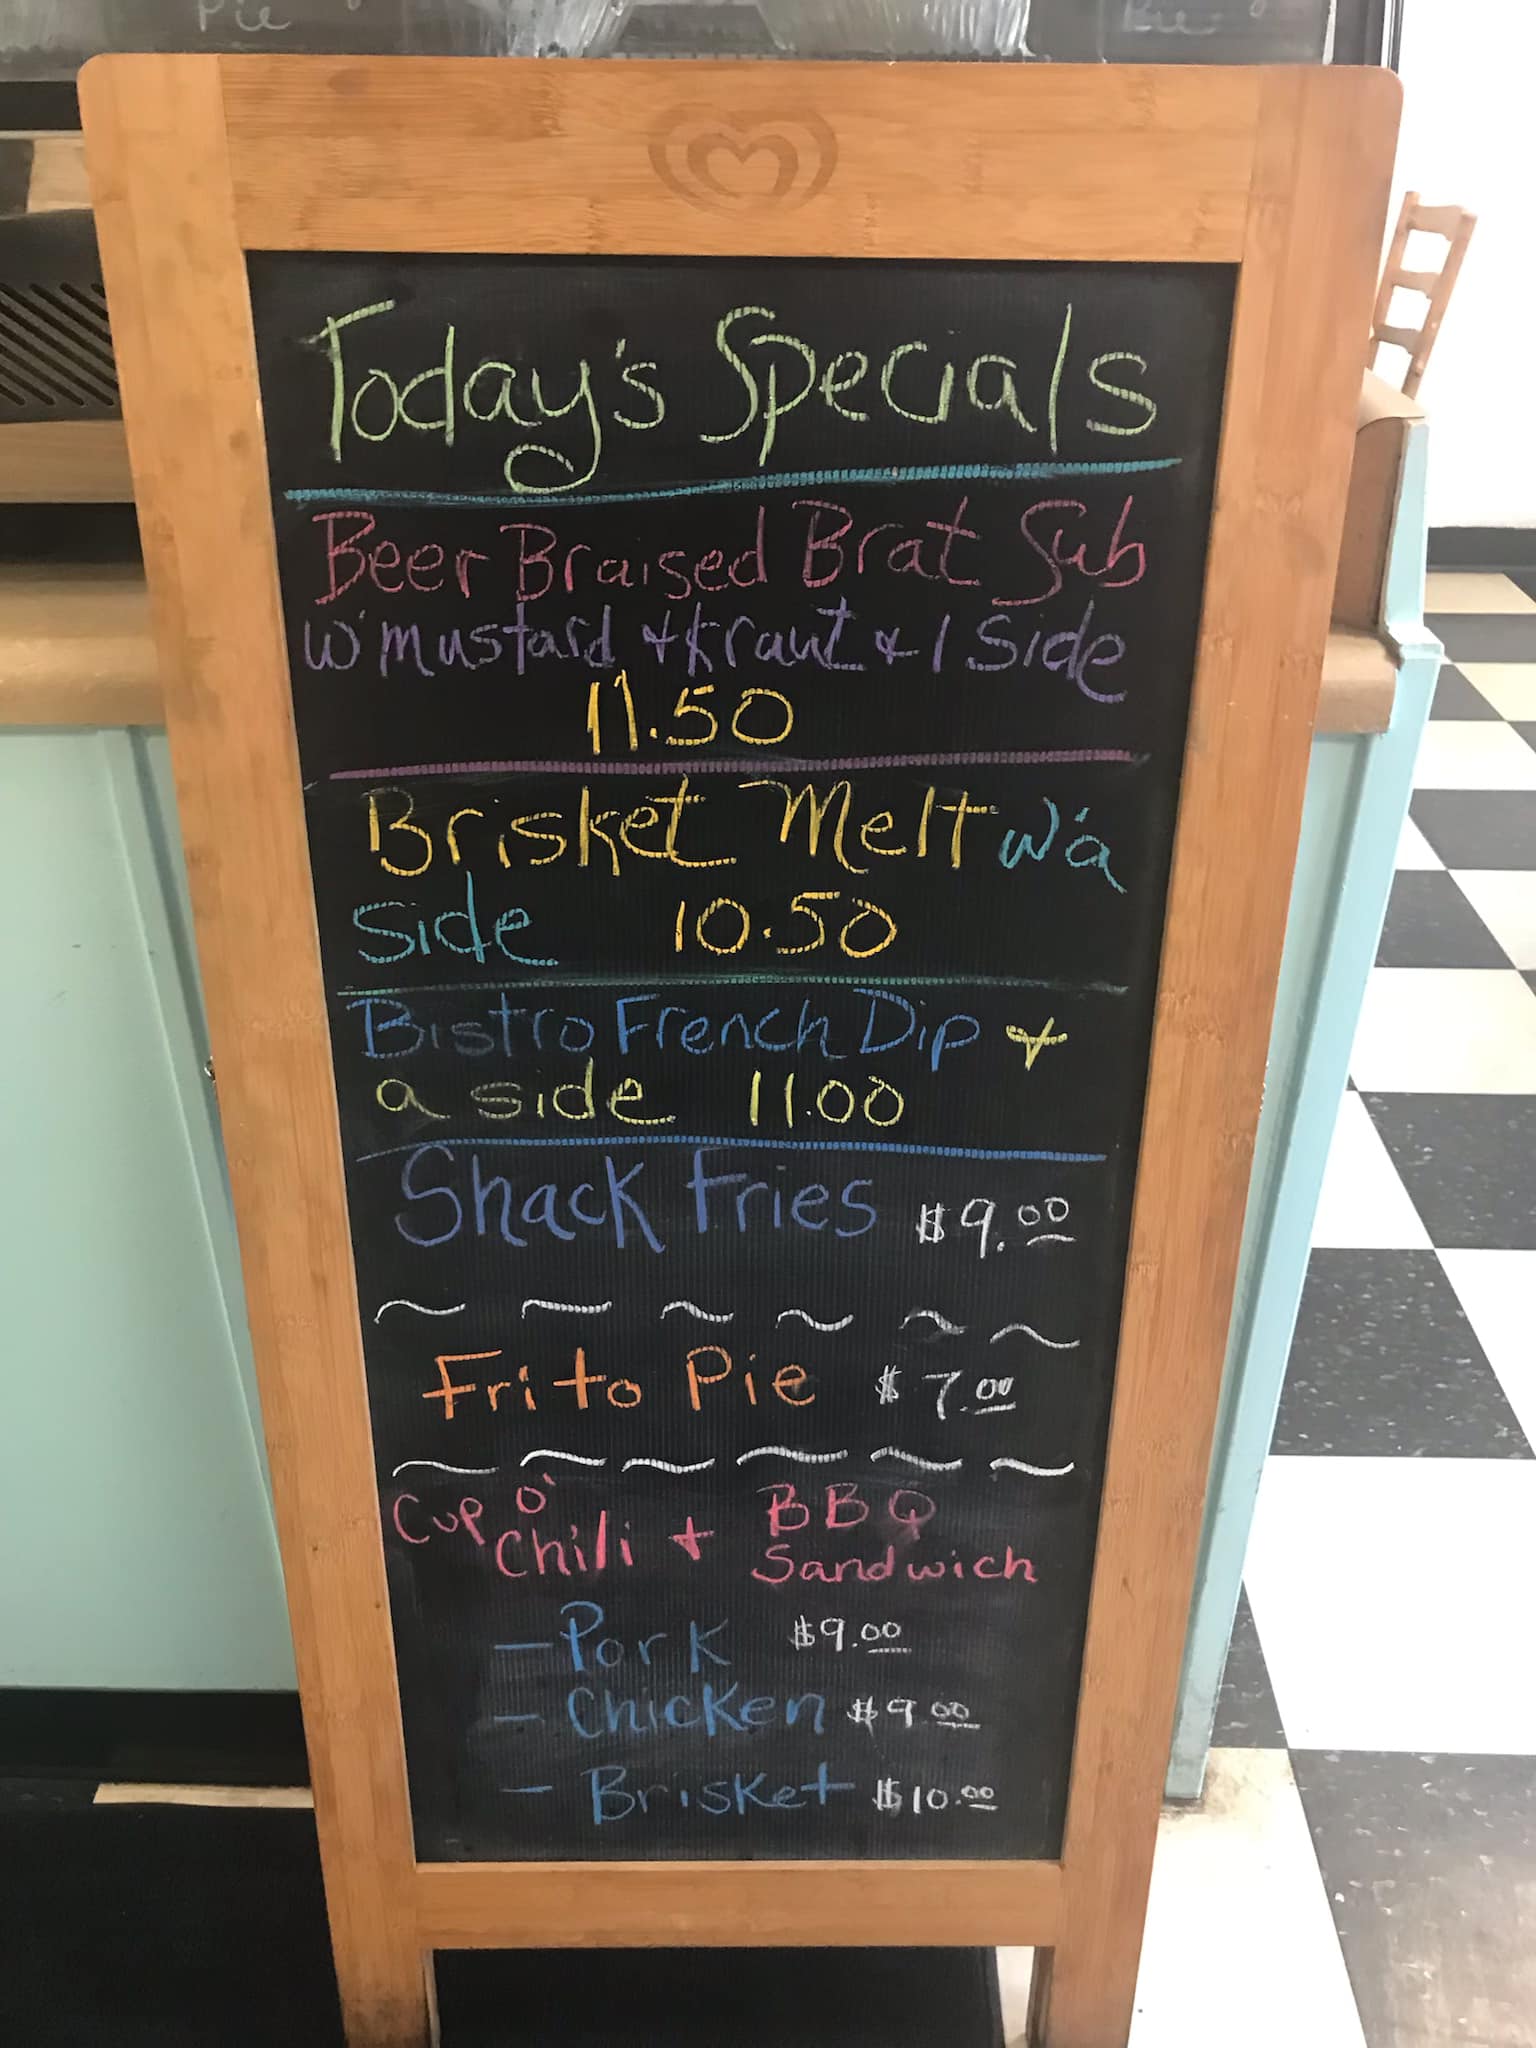 Pie
Pie
Today's Specials
Beer Braised Brat Sub
w' mustard + kraut + 1 side
11.50
Brisket Melt w'a
side 10.50
Bistro French Dip +
a side 11.00
Shack Fries $9.00
Frito Pie $7.00
Cup O' Chili + BBQ Sandwich
- Pork $9.00
- Chicken $9.00
- Brisket $10.00